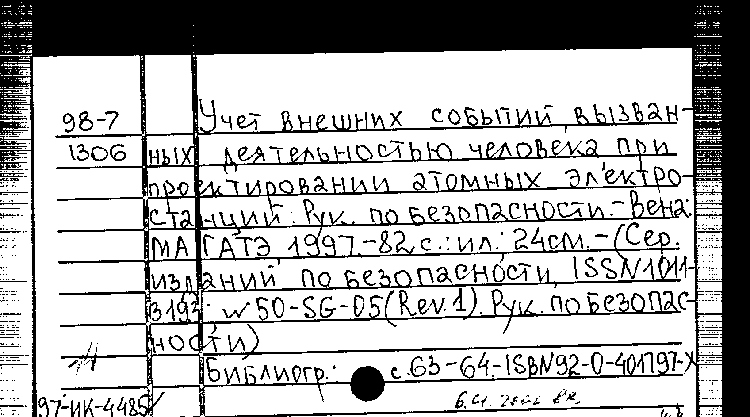 98-7 Учет внешних событий, вызван-
1306 ных деятельностью человека при
проектировании атомных электро-
станций. Рук. по безопасности.-Вена:
МАГАТЭ, 1997.-82с.:ил.; 24см.-(Сер.
изданий по безопасности, ISSN 1011-
3193: №50-SG-D5(Rev.1). Рук. по безопас-
ности)
Библиогр.: с.63-64-ISBN92-0-401797-X
97-ИК-4485